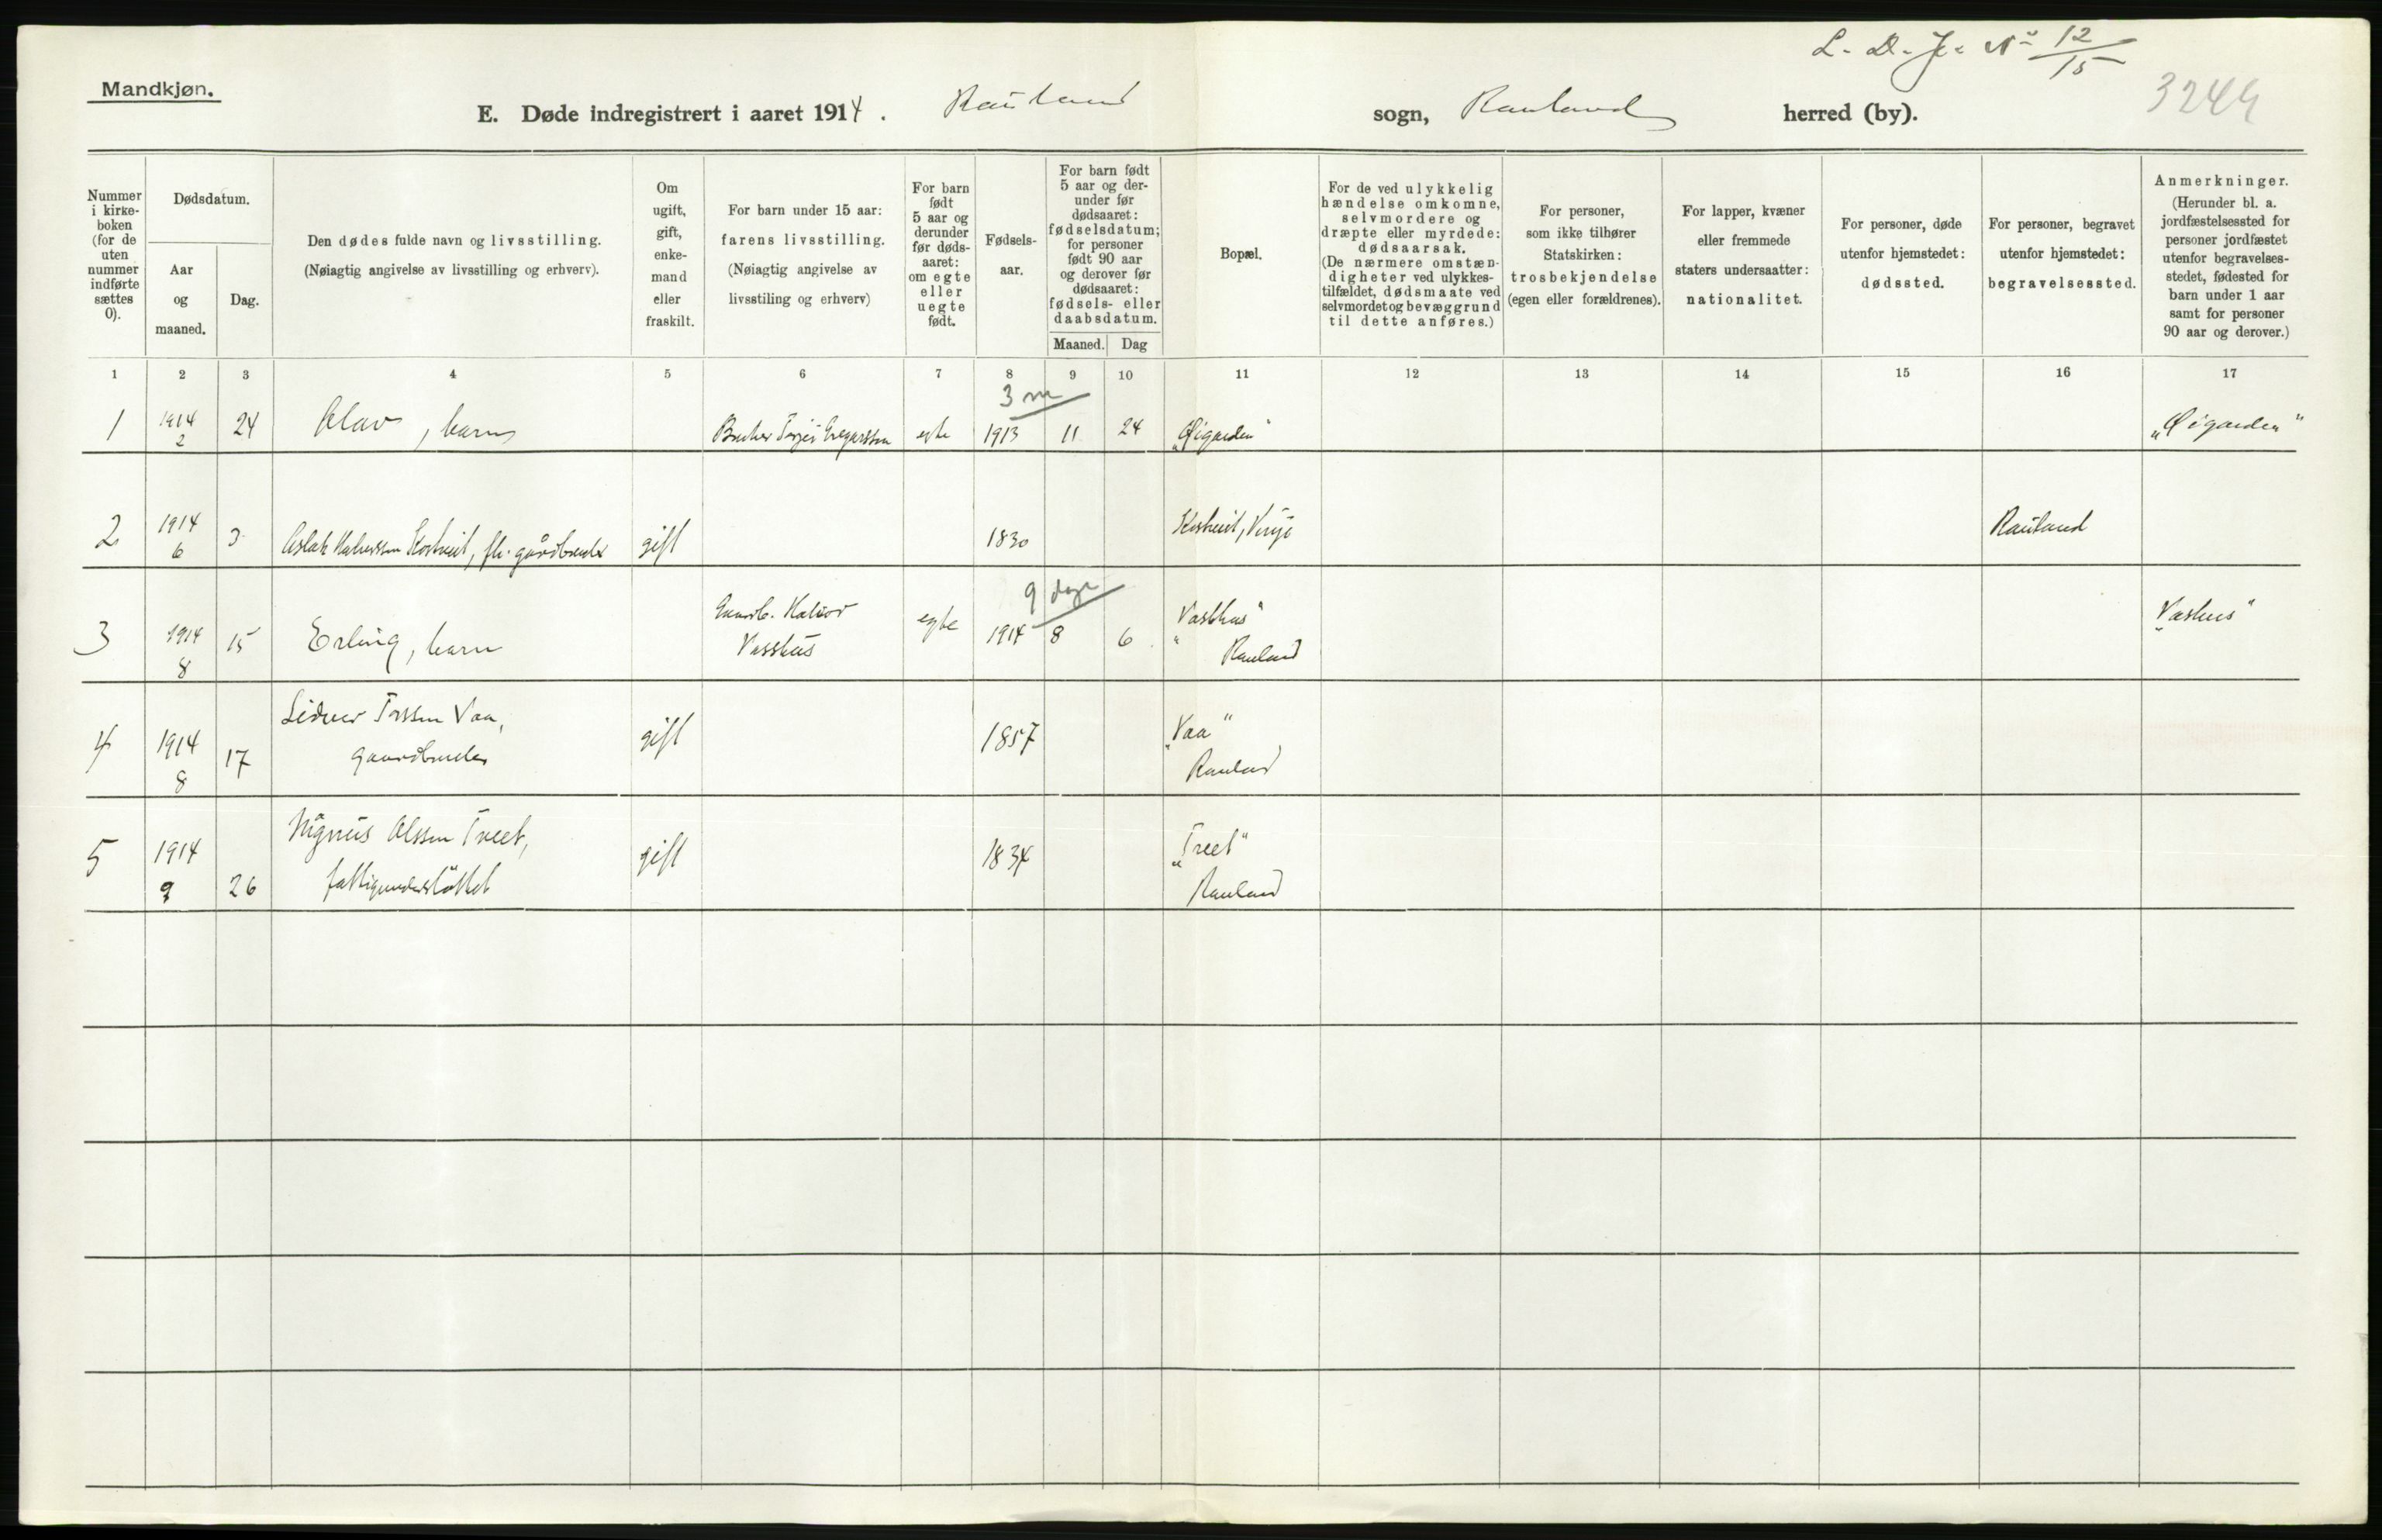 L. D. J. No 12/15
3244
Mandkjøn.
E. Døde indregistrert i aaret 1914. Rauland sogn, Rauland herred (by).
Nummer
i kirke-
boken
(for de
uten
nummer
indførte
sættes
0).
Dødsdatum.
Aar
og
maaned.
Dag.
Den dødes fulde navn og livsstilling.
(Nøiagtig angivelse av livsstilling og erhverv).
Om
ugift,
gift,
enke-
mand
eller
fraskilt.
For barn under 15 aar:
farens livsstilling.
(Nøiagtig angivelse av
livsstiling og erhverv)
For barn
født
5 aar og
derunder
før døds-
aaret:
om egte
eller
uegte
født.
Fødsels-
aar.
For barn født
5 aar og der-
under før
dødsaaret:
fødselsdatum;
for personer
født 90 aar
og derover før
dødsaaret:
fødsels- eller
daabsdatum.
Maaned. Dag
Bopæl.
For de ved ulykkelig
hændelse omkomne,
selvmordere og
dræpte eller myrdede:
dødsaarsak.
(De nærmere omstæn-
digheter ved ulykkes-
tilfældet, dødsmaate ved
selvmordet og bevæggrund
til dette anføres.)
For personer,
som ikke tilhører
Statskirken:
trosbekjendelse
(egen eller forældrenes).
For lapper, kvæner
eller fremmede
staters undersaatter:
nationalitet.
For personer, døde
utenfor hjemstedet:
dødssted.
For personer, begravet
utenfor hjemstedet:
begravelsessted.
Anmerkninger.
(Herunder bl. a.
jordfæstelsessted for
personer jordfæstet
utenfor begravelses-
stedet, fødested for
barn under 1 aar
samt for personer
90 aar og derover.)
1 2 3 4 5 6 7 8 9 10 11 12 13 14 15 16 17
3 m
1 1914 2 24 Olav, barn Bruker Torjei Gregarssen egte 1913 11 24 "Øigarden" "Øigarden"
2 1914 6 3 Aslak Halvorssen Kostveit, fh. gårdbruker gift 1830 Kostveit, Vinje Rauland
9 dage
3 1914 8 15 Erling, barn Gaardb. Halvor
Vasshus egte 1914 8 6 "Vasshus"
Rauland "Vashus"
4 1914 8 17 Torssen Vaa,
gaardbruker gift 1857 "Vaa"
Rauland
5 1914 9 26 Olssen Treet,
fattigunderstøttet gift 1834 "Treet"
Rauland